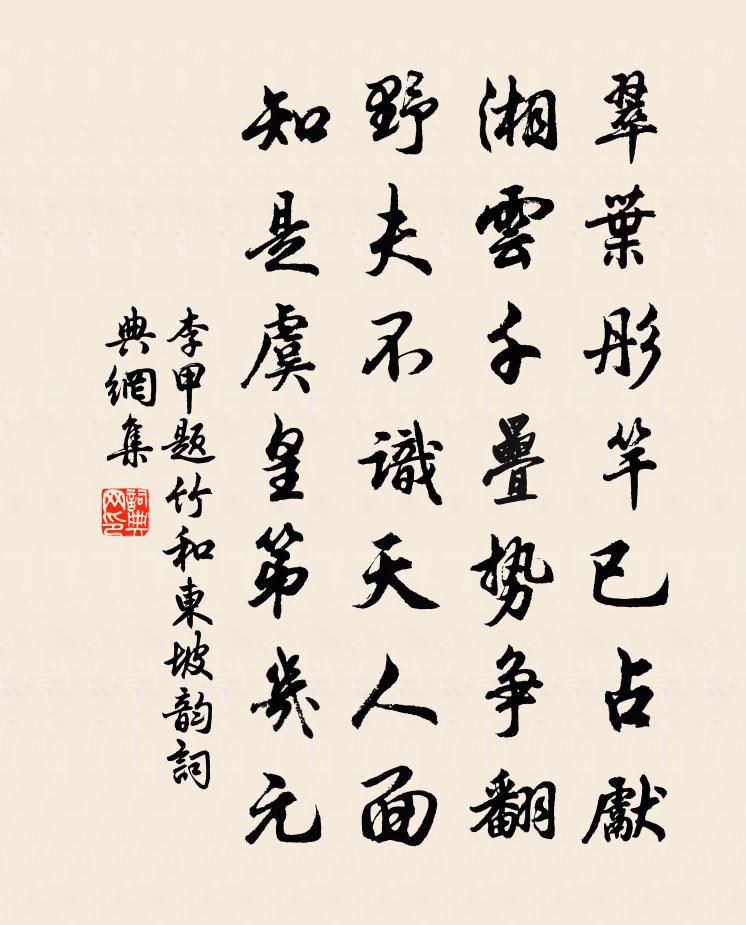 翠葉彤竿已占獻
湘雲千疊势争翻
野夫不識天人面
知是虞皇第幾元
李甲題竹和東坡韵詞
典網集
詞典网印